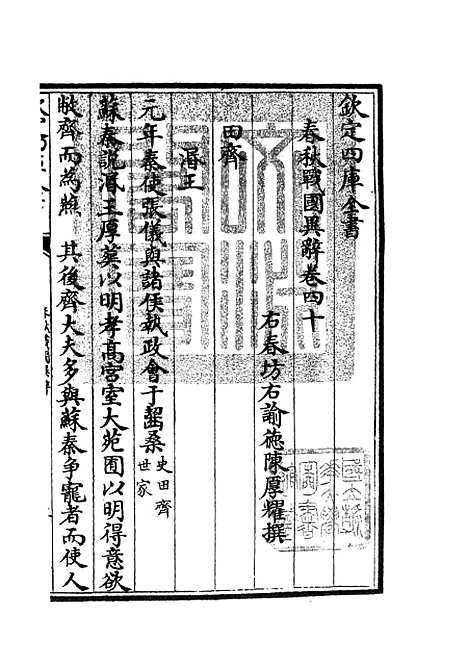 欽定四庫全書
春秋戰國異辭卷四十
右春坊右諭德陳厚耀撰
田齊
湣王
元年秦使張儀與諸侯執政會于齧桑史田齊世家
蘇秦說湣王厚葬以明孝高宮室大苑囿以明得意欲
敝齊而為燕　其後齊大夫多與蘇秦爭寵者而使人